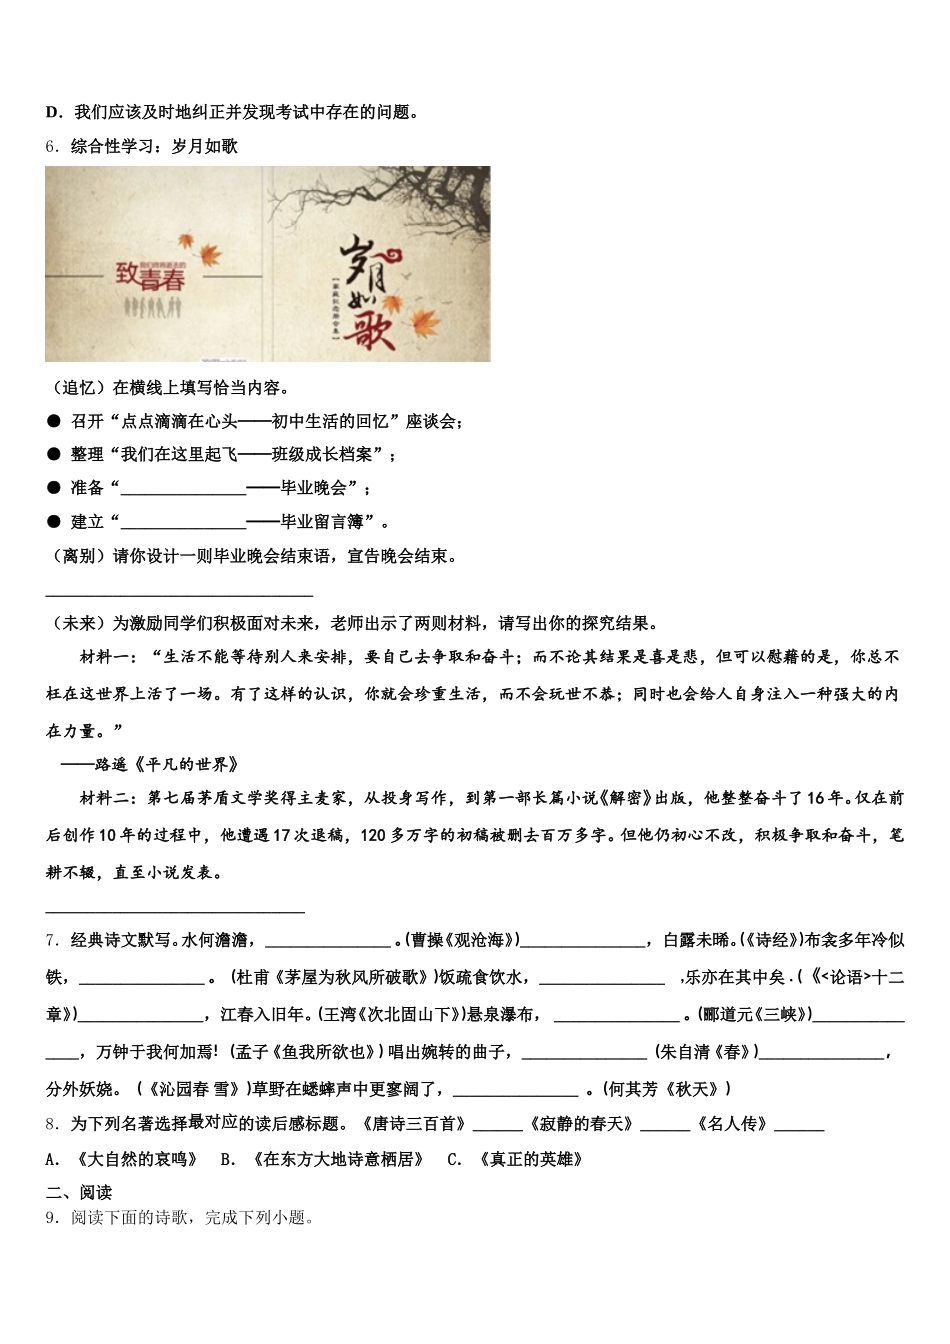 D．我们应该及时地纠正并发现考试中存在的问题。
6．综合性学习：岁月如歌
我们终将逝去的
致青春
岁月如歌
（追忆）在横线上填写恰当内容。
● 召开“点点滴滴在心头——初中生活的回忆”座谈会；
● 整理“我们在这里起飞——班级成长档案”；
● 准备“_______________——毕业晚会”；
● 建立“_______________——毕业留言簿”。
（离别）请你设计一则毕业晚会结束语，宣告晚会结束。
________________________________
（未来）为激励同学们积极面对未来，老师出示了两则材料，请写出你的探究结果。
材料一：“生活不能等待别人来安排，要自己去争取和奋斗；而不论其结果是喜是悲，但可以慰藉的是，你总不
枉在这世界上活了一场。有了这样的认识，你就会珍重生活，而不会玩世不恭；同时也会给人自身注入一种强大的内
在力量。”
——路遥《平凡的世界》
材料二：第七届茅盾文学奖得主麦家，从投身写作，到第一部长篇小说《解密》出版，他整整奋斗了 16 年。仅在前
后创作 10 年的过程中，他遭遇 17 次退稿，120 多万字的初稿被删去百万多字。但他仍初心不改，积极争取和奋斗，笔
耕不辍，直至小说发表。
_______________________________
7．经典诗文默写。水何澹澹，_______________ 。(曹操《观沧海》)_______________，白露未晞。(《诗经》)布衾多年冷似
铁，_______________ 。 (杜甫《茅屋为秋风所破歌》)饭疏食饮水，_______________ ,乐亦在其中矣．( 《<论语>十二
章》)_______________，江春入旧年。(王湾《次北固山下》)悬泉瀑布， _______________ 。(郦道元《三峡》)___________
____，万钟于我何加焉! (孟子《鱼我所欲也》) 唱出婉转的曲子，_______________ (朱自清《春》)_______________，
分外妖娆。 ( 《沁园春 雪》)草野在蟋蟀声中更寥阔了，_______________ 。(何其芳《秋天》)
8．为下列名著选择最对应的读后感标题。《唐诗三百首》______《寂静的春天》______《名人传》______
A．《大自然的哀鸣》 B．《在东方大地诗意栖居》 C．《真正的英雄》
二、阅读
9．阅读下面的诗歌，完成下列小题。